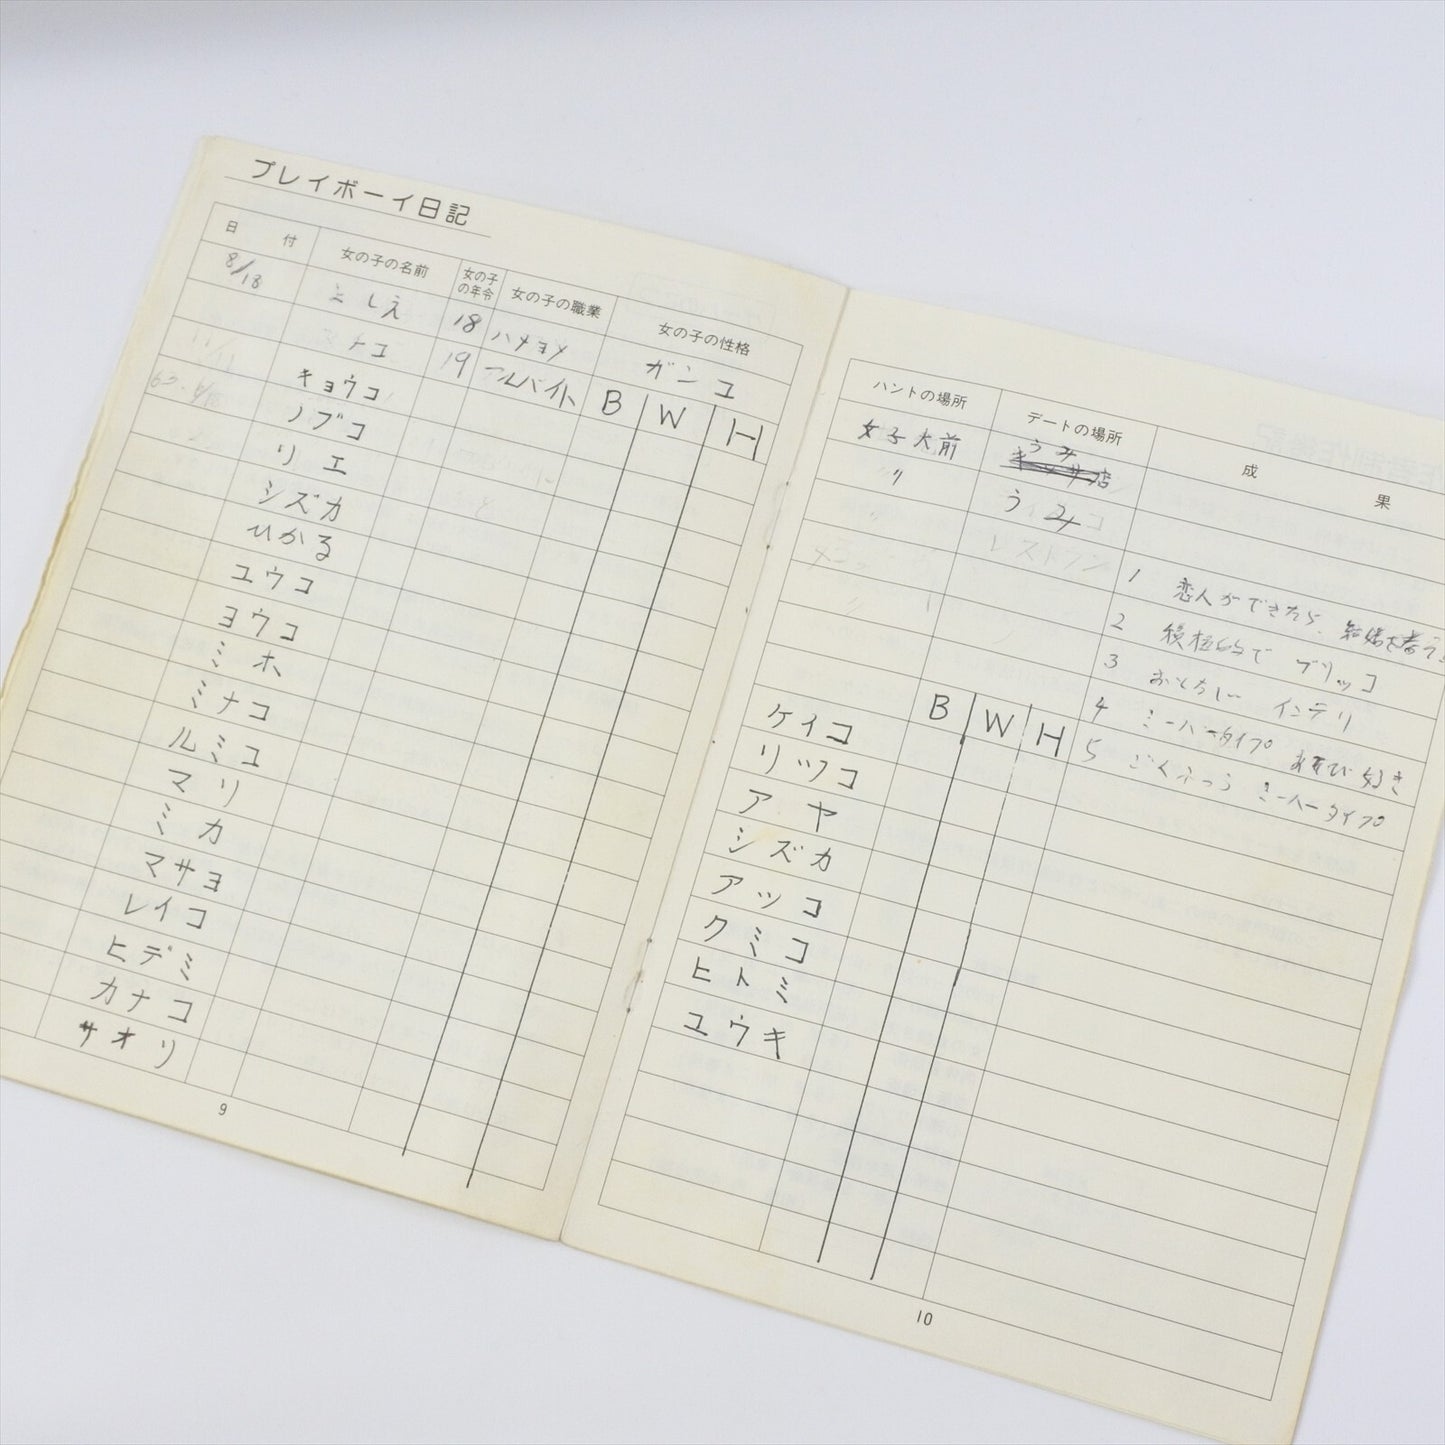 プレイボーイ日記
日付 女の子の名前 女の子の年令 女の子の職業 女の子の性格
8/18 としえ 18 ハナヨメ ガンコ
トコ 19 アルバイト B W H
キョウコ
ノブコ
リエ
シズカ
ひかる
ユウコ
ヨウコ
ミホ
ミナコ
ルミコ
マリ
ミカ
マサヨ
レイコ
ヒデミ
カナコ
サオリ
9
ハントの場所 デートの場所 成果
女子大前 うみ
〃 うみ
レストラン
1 恋人ができたら、結婚を考
2 積極的で ブリッコ
3 おとなしい インテリ
4 ミーハータイプ あそび好き
5 ごくふつう ミーハータイプ
ケイコ B W H
リツコ
アヤ
シズカ
アツコ
クミコ
ヒトミ
ユウキ
10